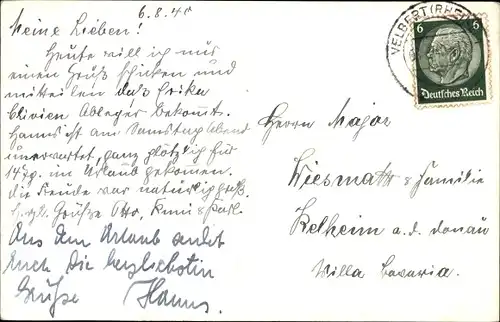 6.8.40
Meine Lieben!
Heute will ich nur
einen Gruß schicken und
mitteilen daß Erika
Clivien Ableger bekommt.
Hanns ist am Samstag Abend
unerwartet, ganz plötzlich für
14 Tg. im Urlaub gekommen.
die Freude war natürlich groß.
Herzl. Grüße Otto, Emmi &
Aus dem Urlaub sendet
Euch die herzlichsten
Grüße Hanns.
VELBERT (RHEINL
6 6
Deutsches Reich
Herrn Major
& Familie
Kelheim a.d. Donau
Villa Bavaria.